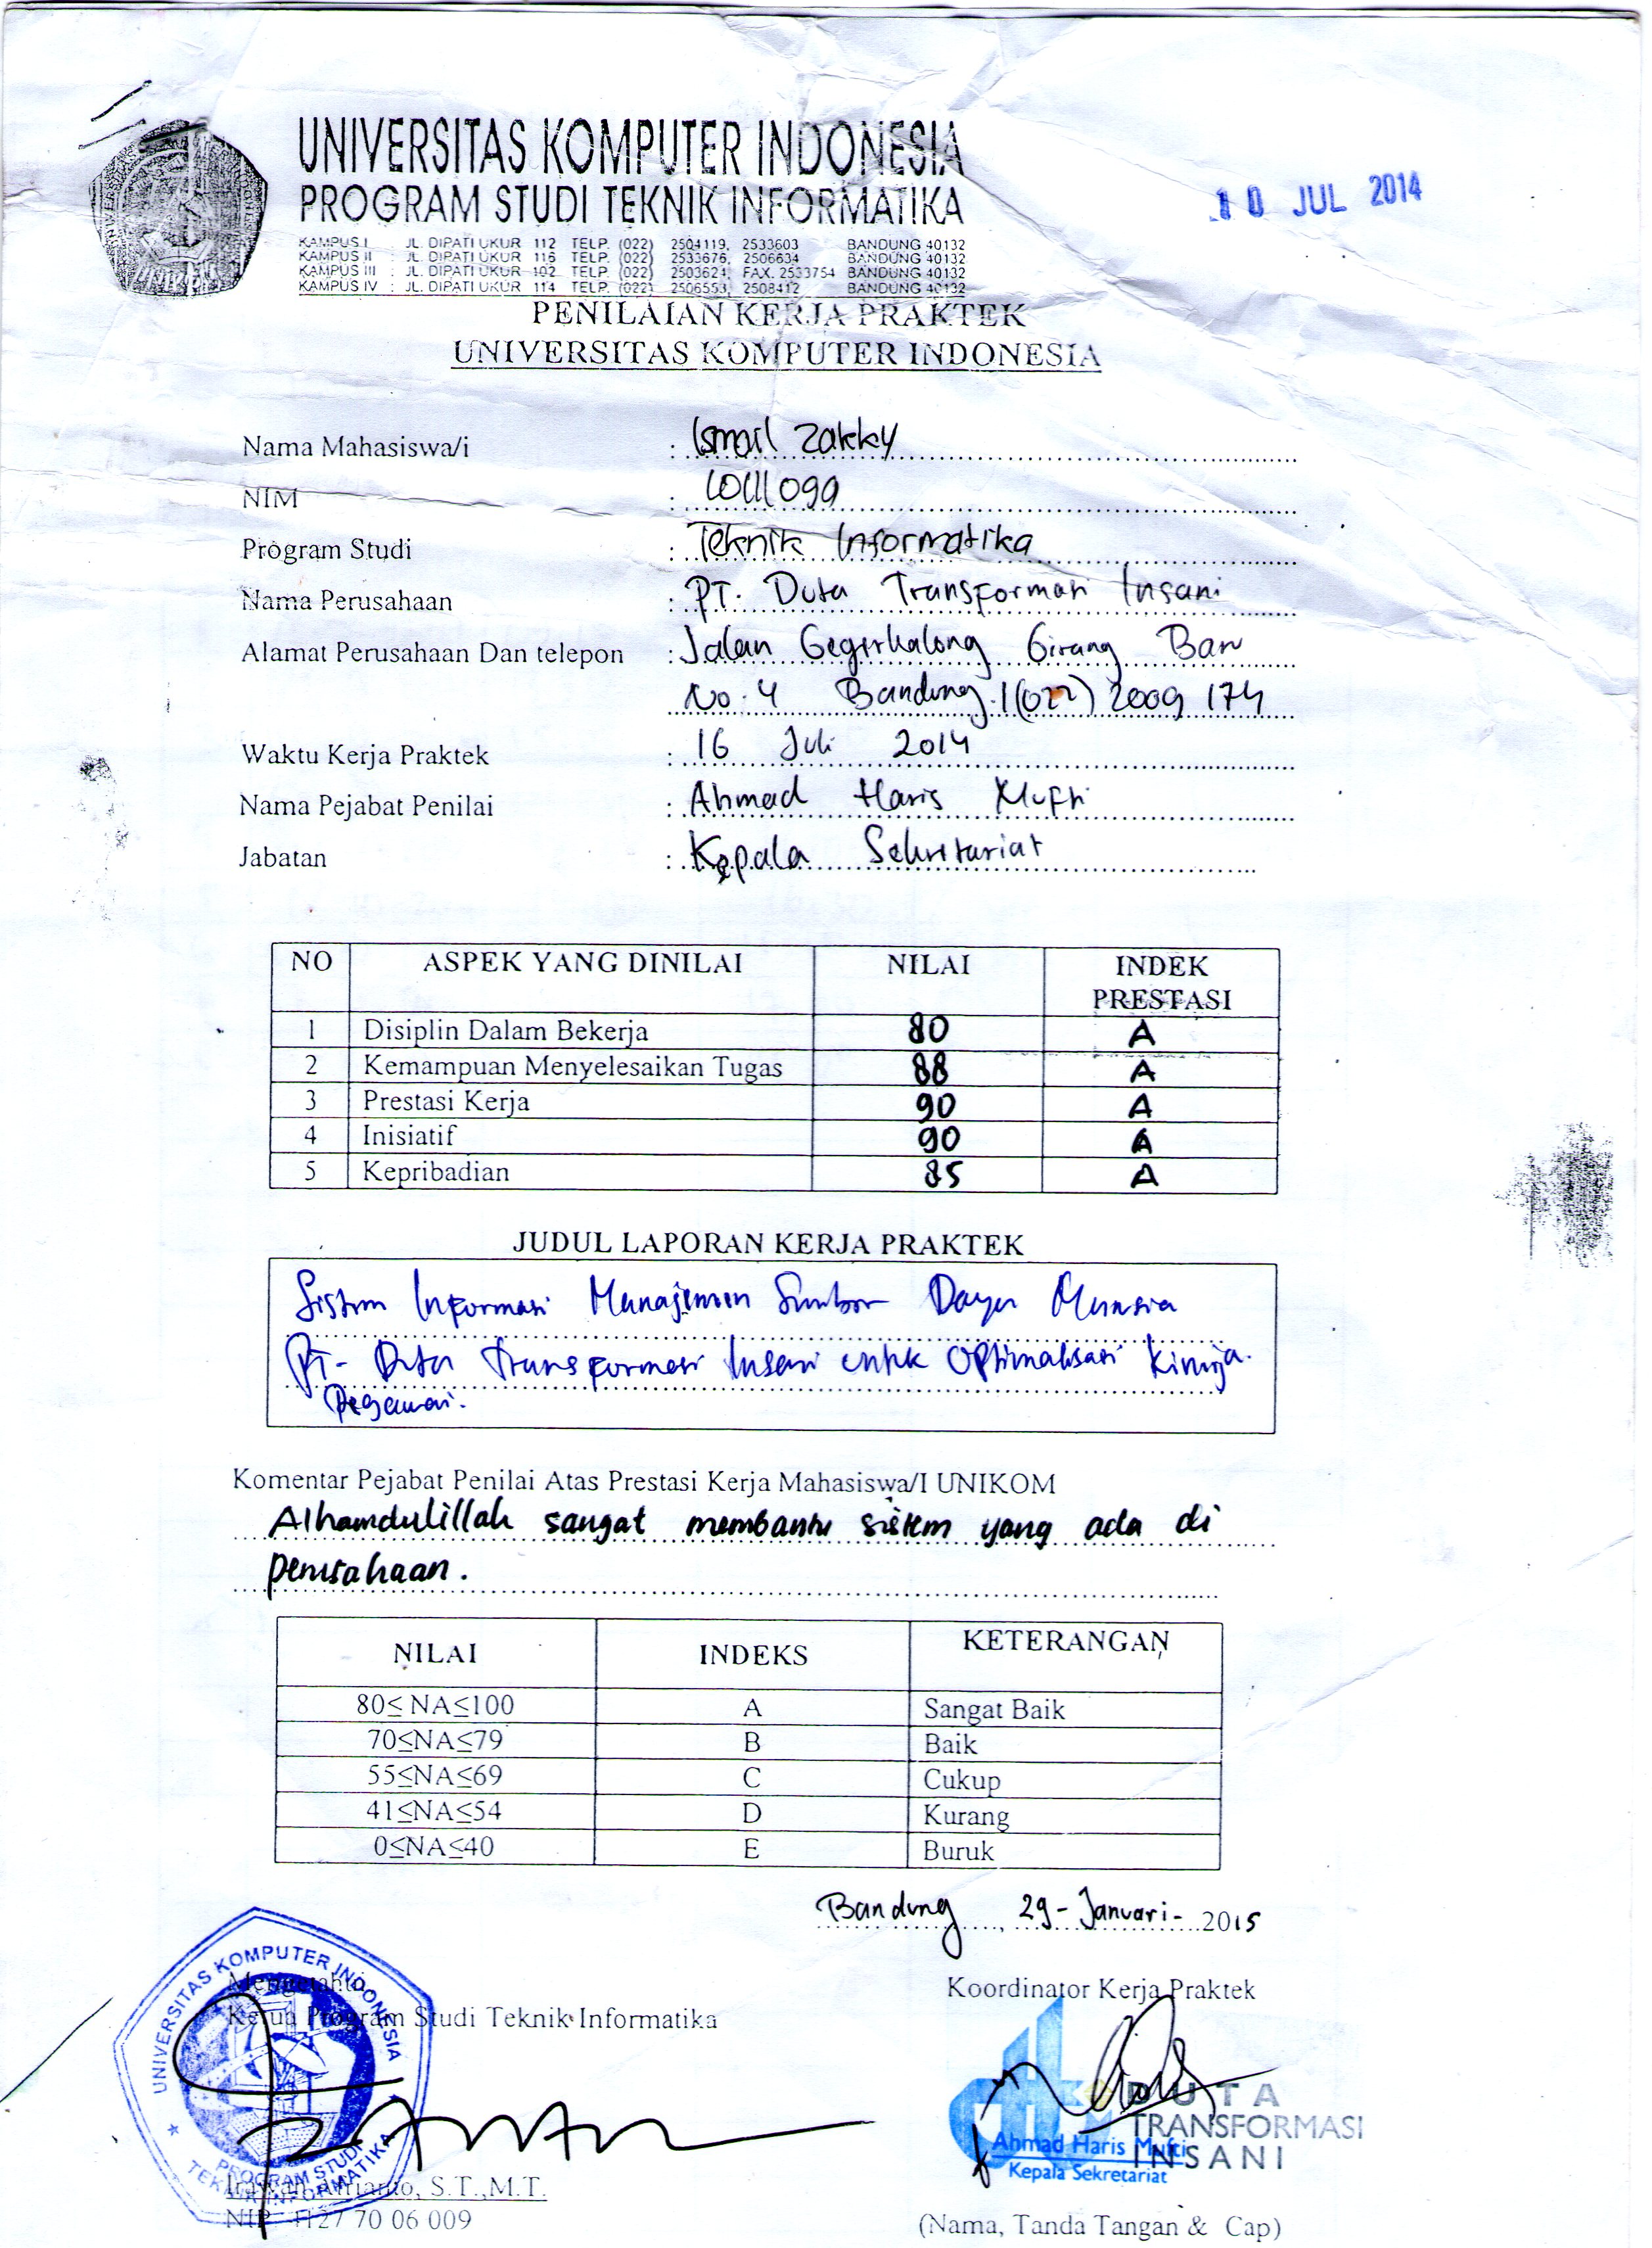 UNIVERSITAS KOMPUTER INDONESIA
PROGRAM STUDI TEKNIK INFORMATIKA
10 JUL 2014
KAMPUS I : JL. DIPATI UKUR 112 TELP. (022) 2504119, 2533603 BANDUNG 40132
KAMPUS II : JL. DIPATI UKUR 116 TELP. (022) 2533676, 2506634 BANDUNG 40132
KAMPUS III : JL. DIPATI UKUR 102 TELP. (022) 2503624, FAX. 2533754 BANDUNG 40132
KAMPUS IV : JL. DIPATI UKUR 114 TELP. (022) 2506553, 2508412 BANDUNG 40132
PENILAIAN KERJA PRAKTEK
UNIVERSITAS KOMPUTER INDONESIA
Nama Mahasiswa/i : Ismail Zakky
NIM : 10111099
Program Studi : Teknik Informatika
Nama Perusahaan : PT. Duta Transformasi Insani
Alamat Perusahaan Dan telepon : Jalan Gegerkalong Girang Baru
No. 4 Bandung / (022) 2009 174
Waktu Kerja Praktek : 16 Juli 2014
Nama Pejabat Penilai : Ahmad Haris Mufti
Jabatan : Kepala Sekretariat
NO ASPEK YANG DINILAI NILAI INDEK PRESTASI
1 Disiplin Dalam Bekerja 80 A
2 Kemampuan Menyelesaikan Tugas 88 A
3 Prestasi Kerja 90 A
4 Inisiatif 90 A
5 Kepribadian 85 A
JUDUL LAPORAN KERJA PRAKTEK
Sistem Informasi Manajemen Sumber Daya Manusia
PT. Duta Transformasi Insani untuk Optimalisasi Kinerja
Pegawai.
Komentar Pejabat Penilai Atas Prestasi Kerja Mahasiswa/I UNIKOM
Alhamdulillah sangat membantu sistem yang ada di
perusahaan.
NILAI INDEKS KETERANGAN
80≤ NA≤100 A Sangat Baik
70≤NA≤79 B Baik
55≤NA≤69 C Cukup
41≤NA≤54 D Kurang
0≤NA≤40 E Buruk
Bandung, 29 - Januari - 2015
Mengetahui
Ketua Program Studi Teknik Informatika
Koordinator Kerja Praktek
UNIVERSITAS KOMPUTER INDONESIA
PROGRAM STUDI
TEKNIK INFORMATIKA
DUTA
TRANSFORMASI
INSANI
Ahmad Haris Mufti
Kepala Sekretariat
Irawan Afrianto, S.T.,M.T.
NIP. 4127 70 06 009
(Nama, Tanda Tangan & Cap)